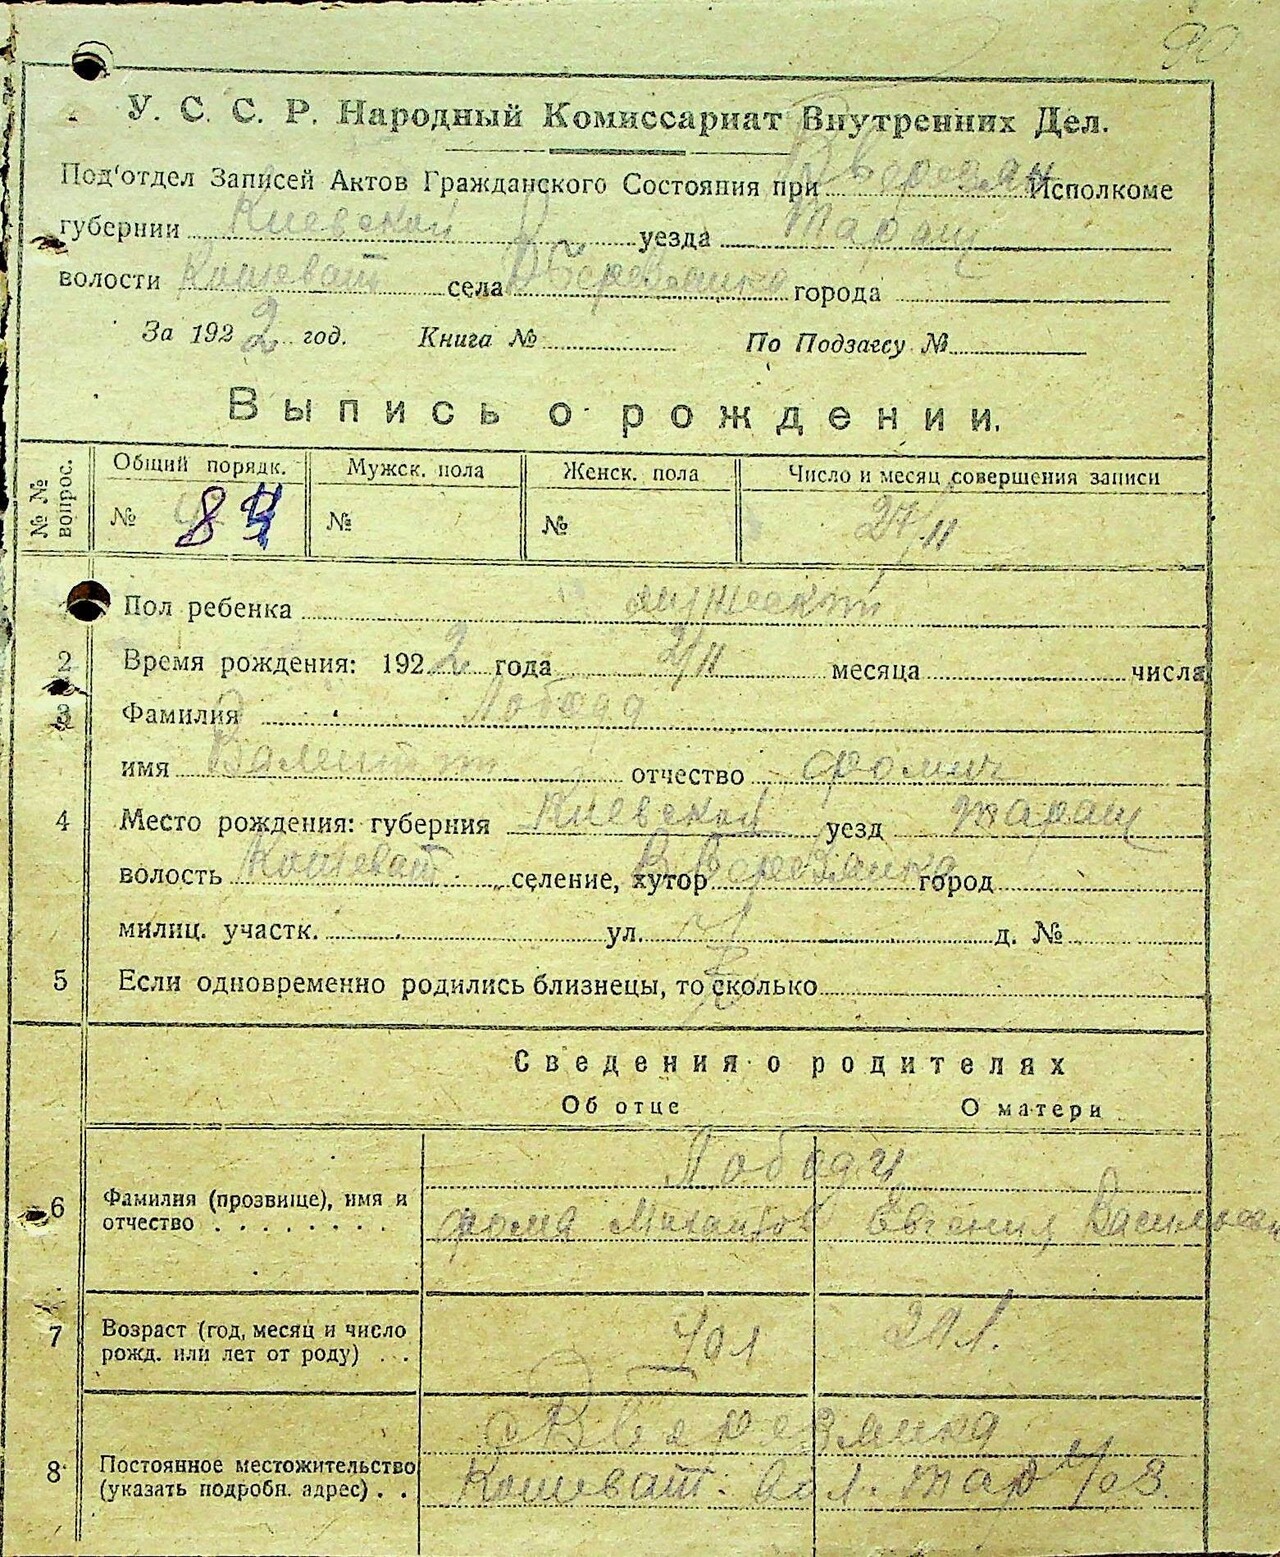 90
У. С. С. Р. Народный Комиссариат Внутренних Дел.
Под'отдел Записей Актов Гражданского Состояния при Исполкоме
губернии Киевской уезда Таращ
волости Кошеват села города
За 1922 год. Книга № По Подзагсу №
Выпись о рождении.
№ № вопрос. Общий порядк. Мужск. пола Женск. пола Число и месяц совершения записи
№ 84 № № 27/II
1 Пол ребенка мужеский
2 Время рождения: 1922 года 2/II месяца числа
3 Фамилия Лобода
имя Валентин отчество Фомич
4 Место рождения: губерния Киевской уезд Таращ
волость Кошеват селение, хутор город
милиц. участк. ул. д. №
5 Если одновременно родились близнецы, то сколько
Сведения о родителях
Об отце О матери
Лободы
6 Фамилия (прозвище), имя и
отчество . . . . . . . . Фома Михайлов Евгения Васильевн
7 Возраст (год, месяц и число
рожд. или лет от роду) . . .
8 Постоянное местожительство
(указать подробн. адрес) . . Кошеват. вол. Тар